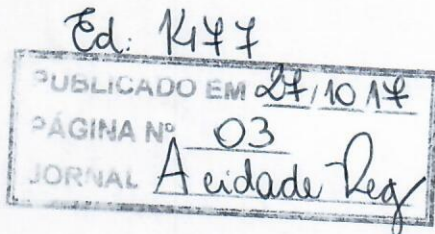 Ed: 1477
PUBLICADO EM 27/10/17
PÁGINA Nº 03
JORNAL A cidade Reg